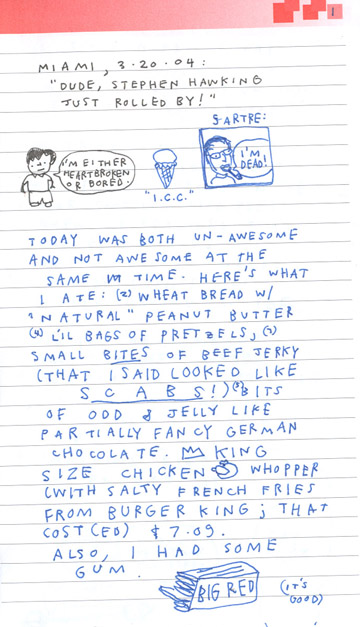 1
MIAMI, 3.20.04:
"DUDE, STEPHEN HAWKING
JUST ROLLED BY!"
SARTRE:
I'M EITHER
HEARTBROKEN
OR BORED.
I'M
DEAD!
"I.C.C."
TODAY WAS BOTH UN-AWESOME
AND NOT AWESOME AT THE
SAME TIME. HERE'S WHAT
I ATE: (2) WHEAT BREAD W/
"NATURAL" PEANUT BUTTER
(4) LIL BAGS OF PRETZELS, (3)
SMALL BITES OF BEEF JERKY
(THAT I SAID LOOKED LIKE
SCABS!) BITS
OF ODD & JELLY LIKE
PARTIALLY FANCY GERMAN
CHOCOLATE. KING
SIZE CHICKEN WHOPPER
(WITH SALTY FRENCH FRIES
FROM BURGER KING; THAT
COST(ED) $7.09.
ALSO, I HAD SOME
GUM.
BIG RED
(IT'S
GOOD)